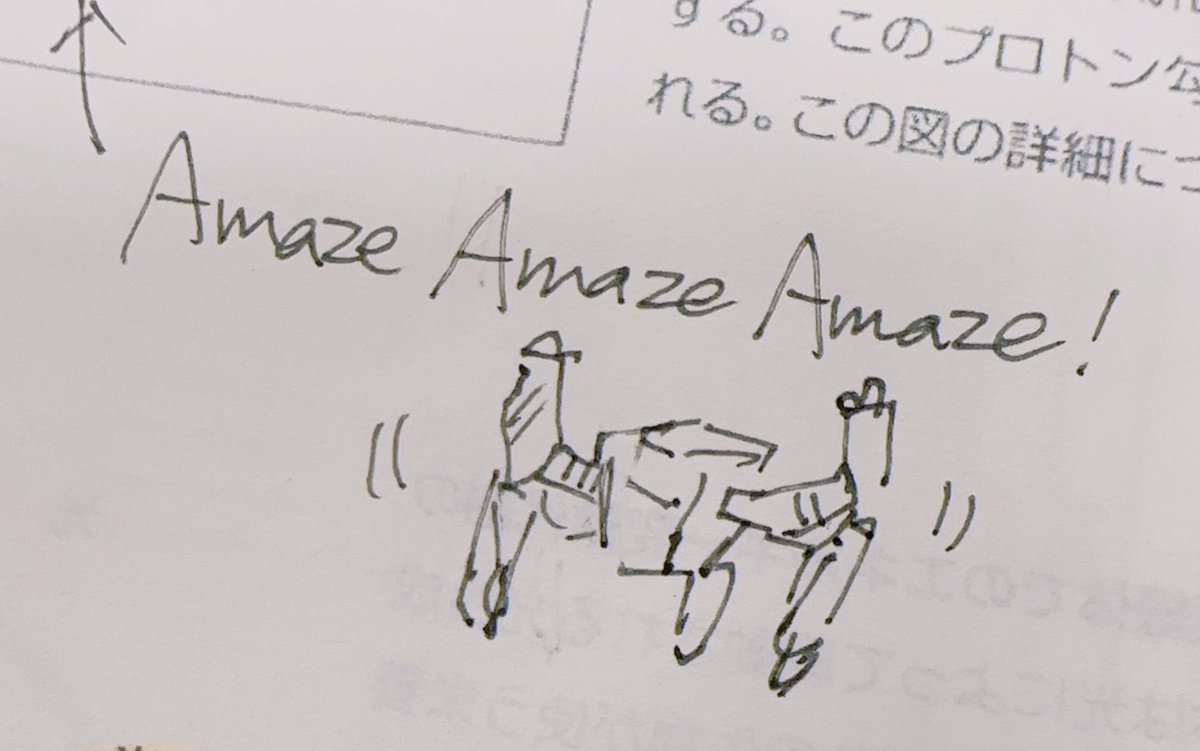 する。このプロトン
れる。この図の詳細に
Amaze Amaze Amaze!